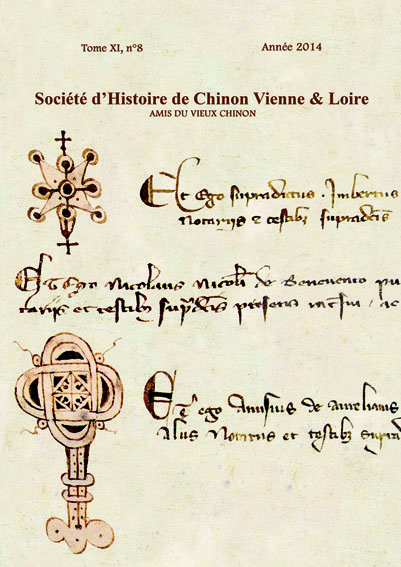 Tome XI, n°8 Année 2014
Société d'Histoire de Chinon Vienne & Loire
AMIS DU VIEUX CHINON
Et Ego supradictus . Imbertus
Notariis z testibz supradcis
Et Ego Nicolaus Nicoli de Benevento pu
tariis et testibz supdcis presens
Et ego Amisius de aurelianis
Notarius et testibz supra